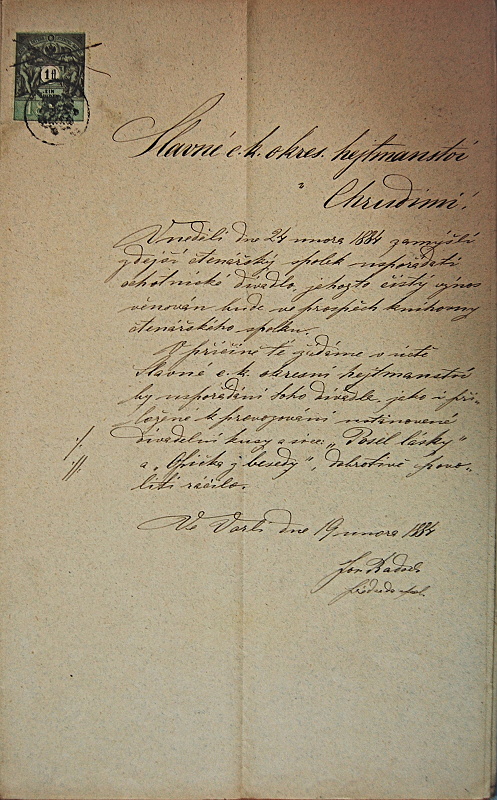 Slavné c. k. okres. hejtmanství
v
Chrudimi!
V neděli dne 24 února 1884 zamýšlí
zdejší čtenářský spolek uspořádati
ochotnické divadlo, jehožto čistý výnos
věnován bude ve prospěch knihovny
čtenářského spolku.
V příčině té žádáme v úctě
Slavné c. k. okresní hejtmanství
by uspořádání toho divadla, jako i při-
ložené k provozování ustanovené
divadelní kusy a sice: „Posel lásky"
a „Opička z besedy", dobrotivě povo-
liti ráčilo.
Ve Vorli dne 19 února 1884
Jos.
předseda spol.